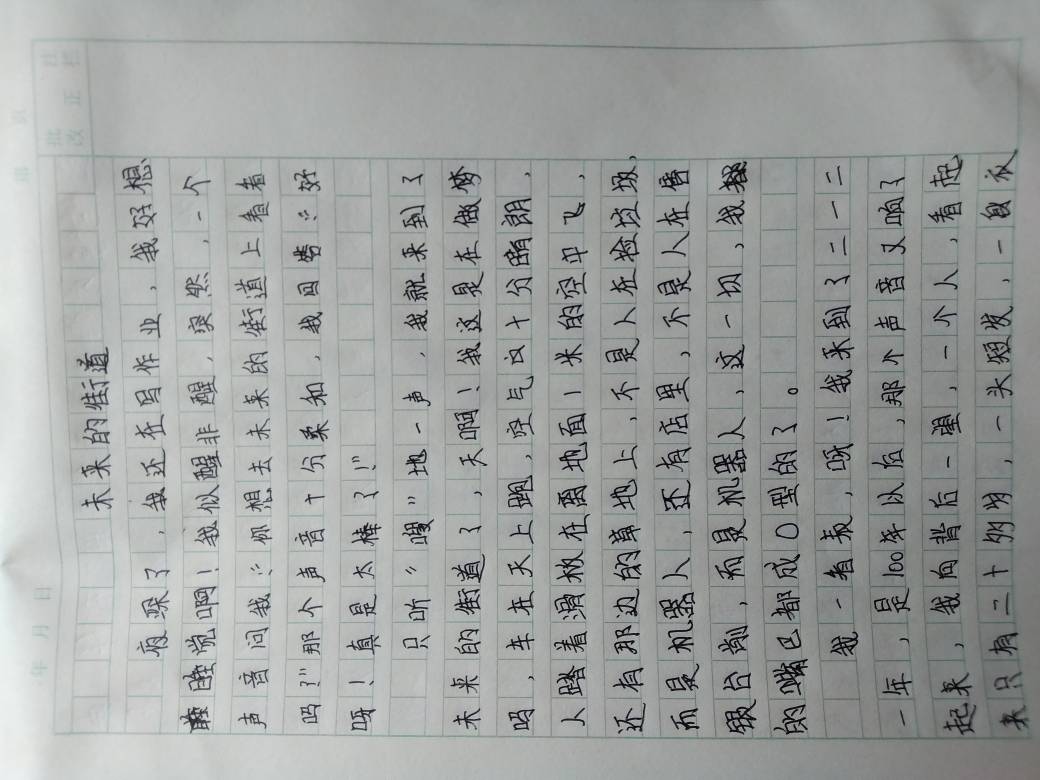 年 月 日
未来的街道
夜深了，我还在写作业，我好想
睡觉啊！我似醒非醒，突然，一个
声音问我：你想去未来的街道上看看
吗？”那个声音十分柔和，我回答：“好
呀！真是太棒了！”
只听“嗖”地一声，我就来到了
未来的街道了，天啊！我这是在做梦
吗，车在天上跑，空气也十分晴朗，
人踏着滑板在离地面1米的空中飞，
还有那边的草地上，不是人在捡垃圾，
而是机器人，还有店里，不是人在售
银台前，而是机器人，这一切，我
的嘴巴都成O型的了。
我一看表，呀！我来到了二一二
一年，是100年以后，那个声音又响了
起来，我向背后一望，一个人，看起
来只有二十多岁，一头短发，一般衣